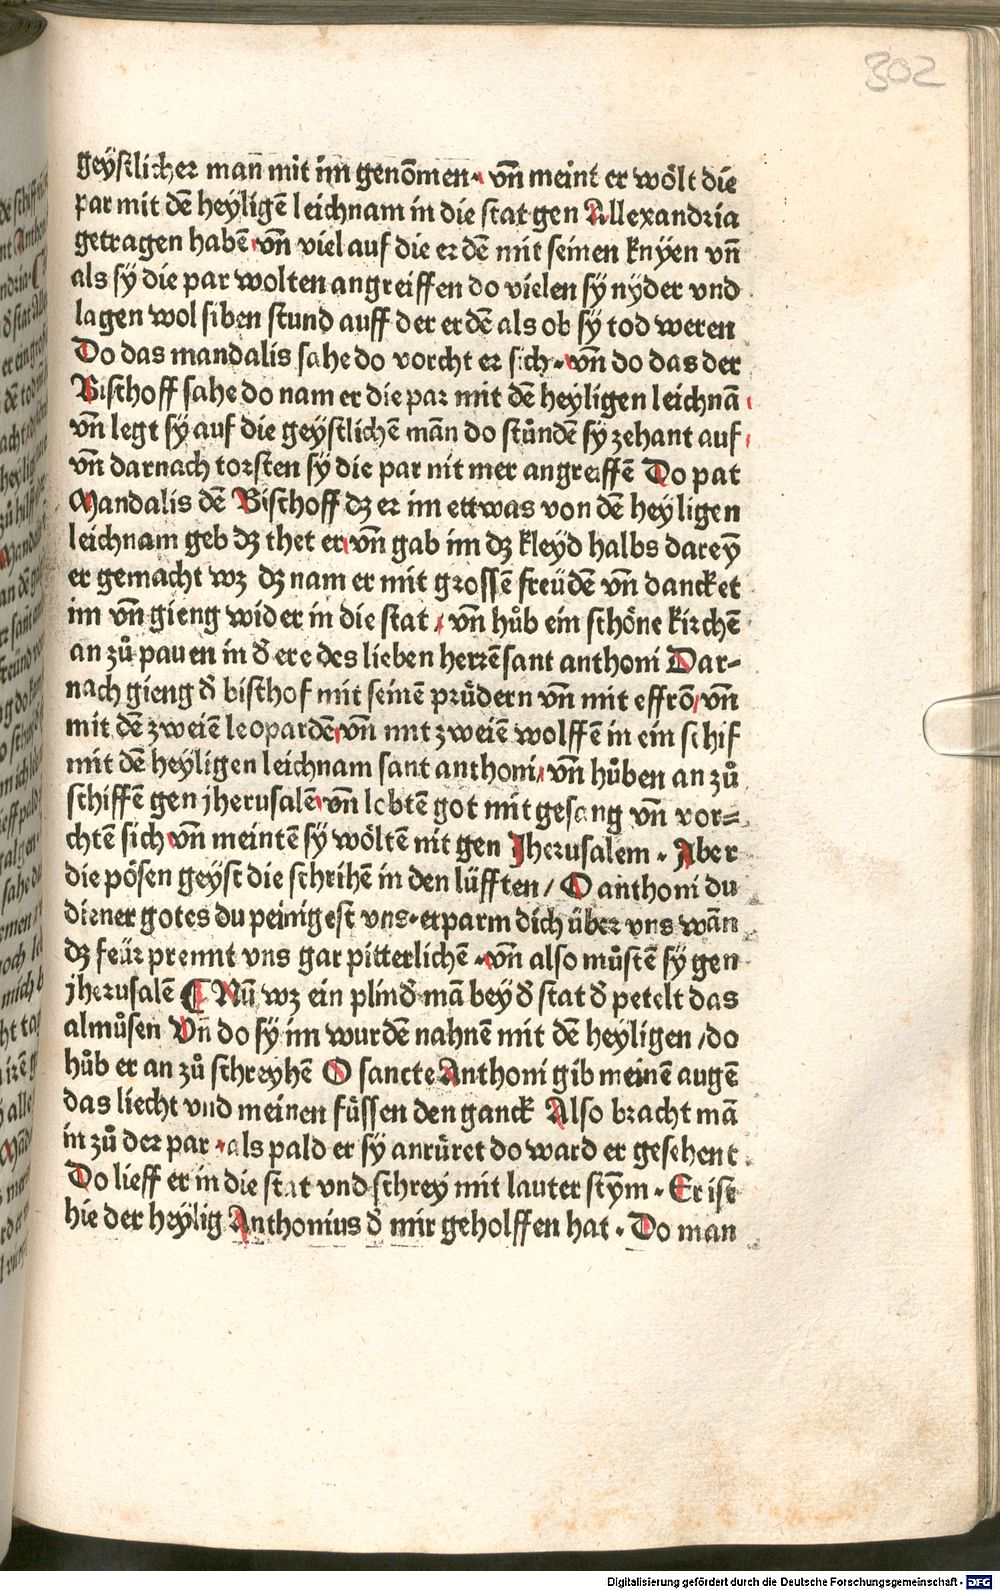 302
geystlicher man̄ mit im genōmen · vn̄ meint er wölt die
par mit dē heyligē leichnam in die stat gen Allexandria
getragen habē vn̄ viel auf die erdē mit seinen knyen vn̄
als sy die par wolten angreiffen do vielen sy nyder vnd
lagen wol siben stund auff der erdē als ob sy tod weren
Do das mandalis sahe do vorcht er sich · vn̄ do das der
Bischoff sahe do nam er die par mit dē heyligen leichnā
vn̄ legt sy auf die geystlichē mān do stůndē sy zehant auf
vn̄ darnach torsten sy die par nit mer angreiffē Do pat
Mandalis dē Bischoff dz er im ettwas von dē heyligen
leichnam geb dz thet er vn̄ gab im dz kleyd halbs dareȳ
er gemacht wz dz nam er mit grossē freüdē vn̄ dancket
im vn̄ gieng wider in die stat / vn̄ hůb ein schöne kirchē
an zů pauen in đ ere des lieben herrē sant anthoni Dar⸗
nach gieng đ bischof mit seinē průdern vn̄ mit effrō / vn̄
mit dē zweiē leopardē vn̄ mit zweiē wolffē in ein schif
mit dē heyligen leichnam sant anthoni / vn̄ hůben an zů
schiffē gen jherusalē vn̄ lobtē got mit gesang vn̄ vor⸗
chtē sich vn̄ meintē sy wöltē nit gen Jherusalem · Aber
die pösen geyst die schrihē in den lüfften / O anthoni du
diener gotes du peinigest vns · erparm dich über vns wān
dz feür prennt vns gar pitterlichē · vn̄ also můstē sy gen
jherusalē ¶ Nū wz ein plinđ mā bey đ stat đ petelt das
almůsen Vn̄ do sy im wurdē nahnē mit dē heyligen / do
hůb er an zů schreyhē O sancte Anthoni gib meinē augē
das liecht vnd meinen füssen den ganck Also bracht mā
in zů der par · als pald er sy anrüret do ward er gesehent
Do lieff er in die stat vnd schrey mit lauter stȳm · Er ist
hie der heylig Anthonius đ mir geholffen hat · Do man
Digitalisierung gefördert durch die Deutsche Forschungsgemeinschaft - DFG